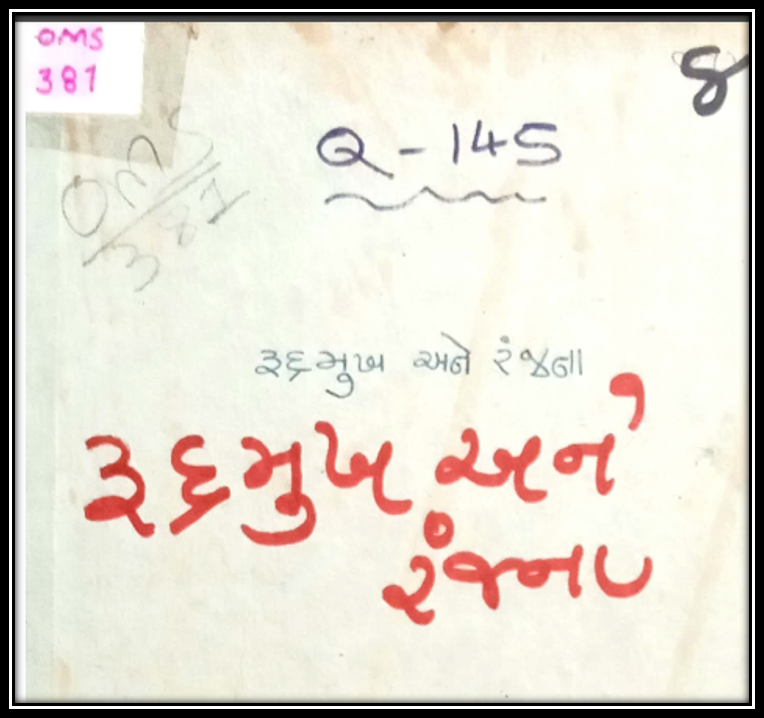 OMS
381
8
Q-145
OMS
381
રૂદ્રમુખ અને રંજના
રૂદ્રમુખ અને
રંજના